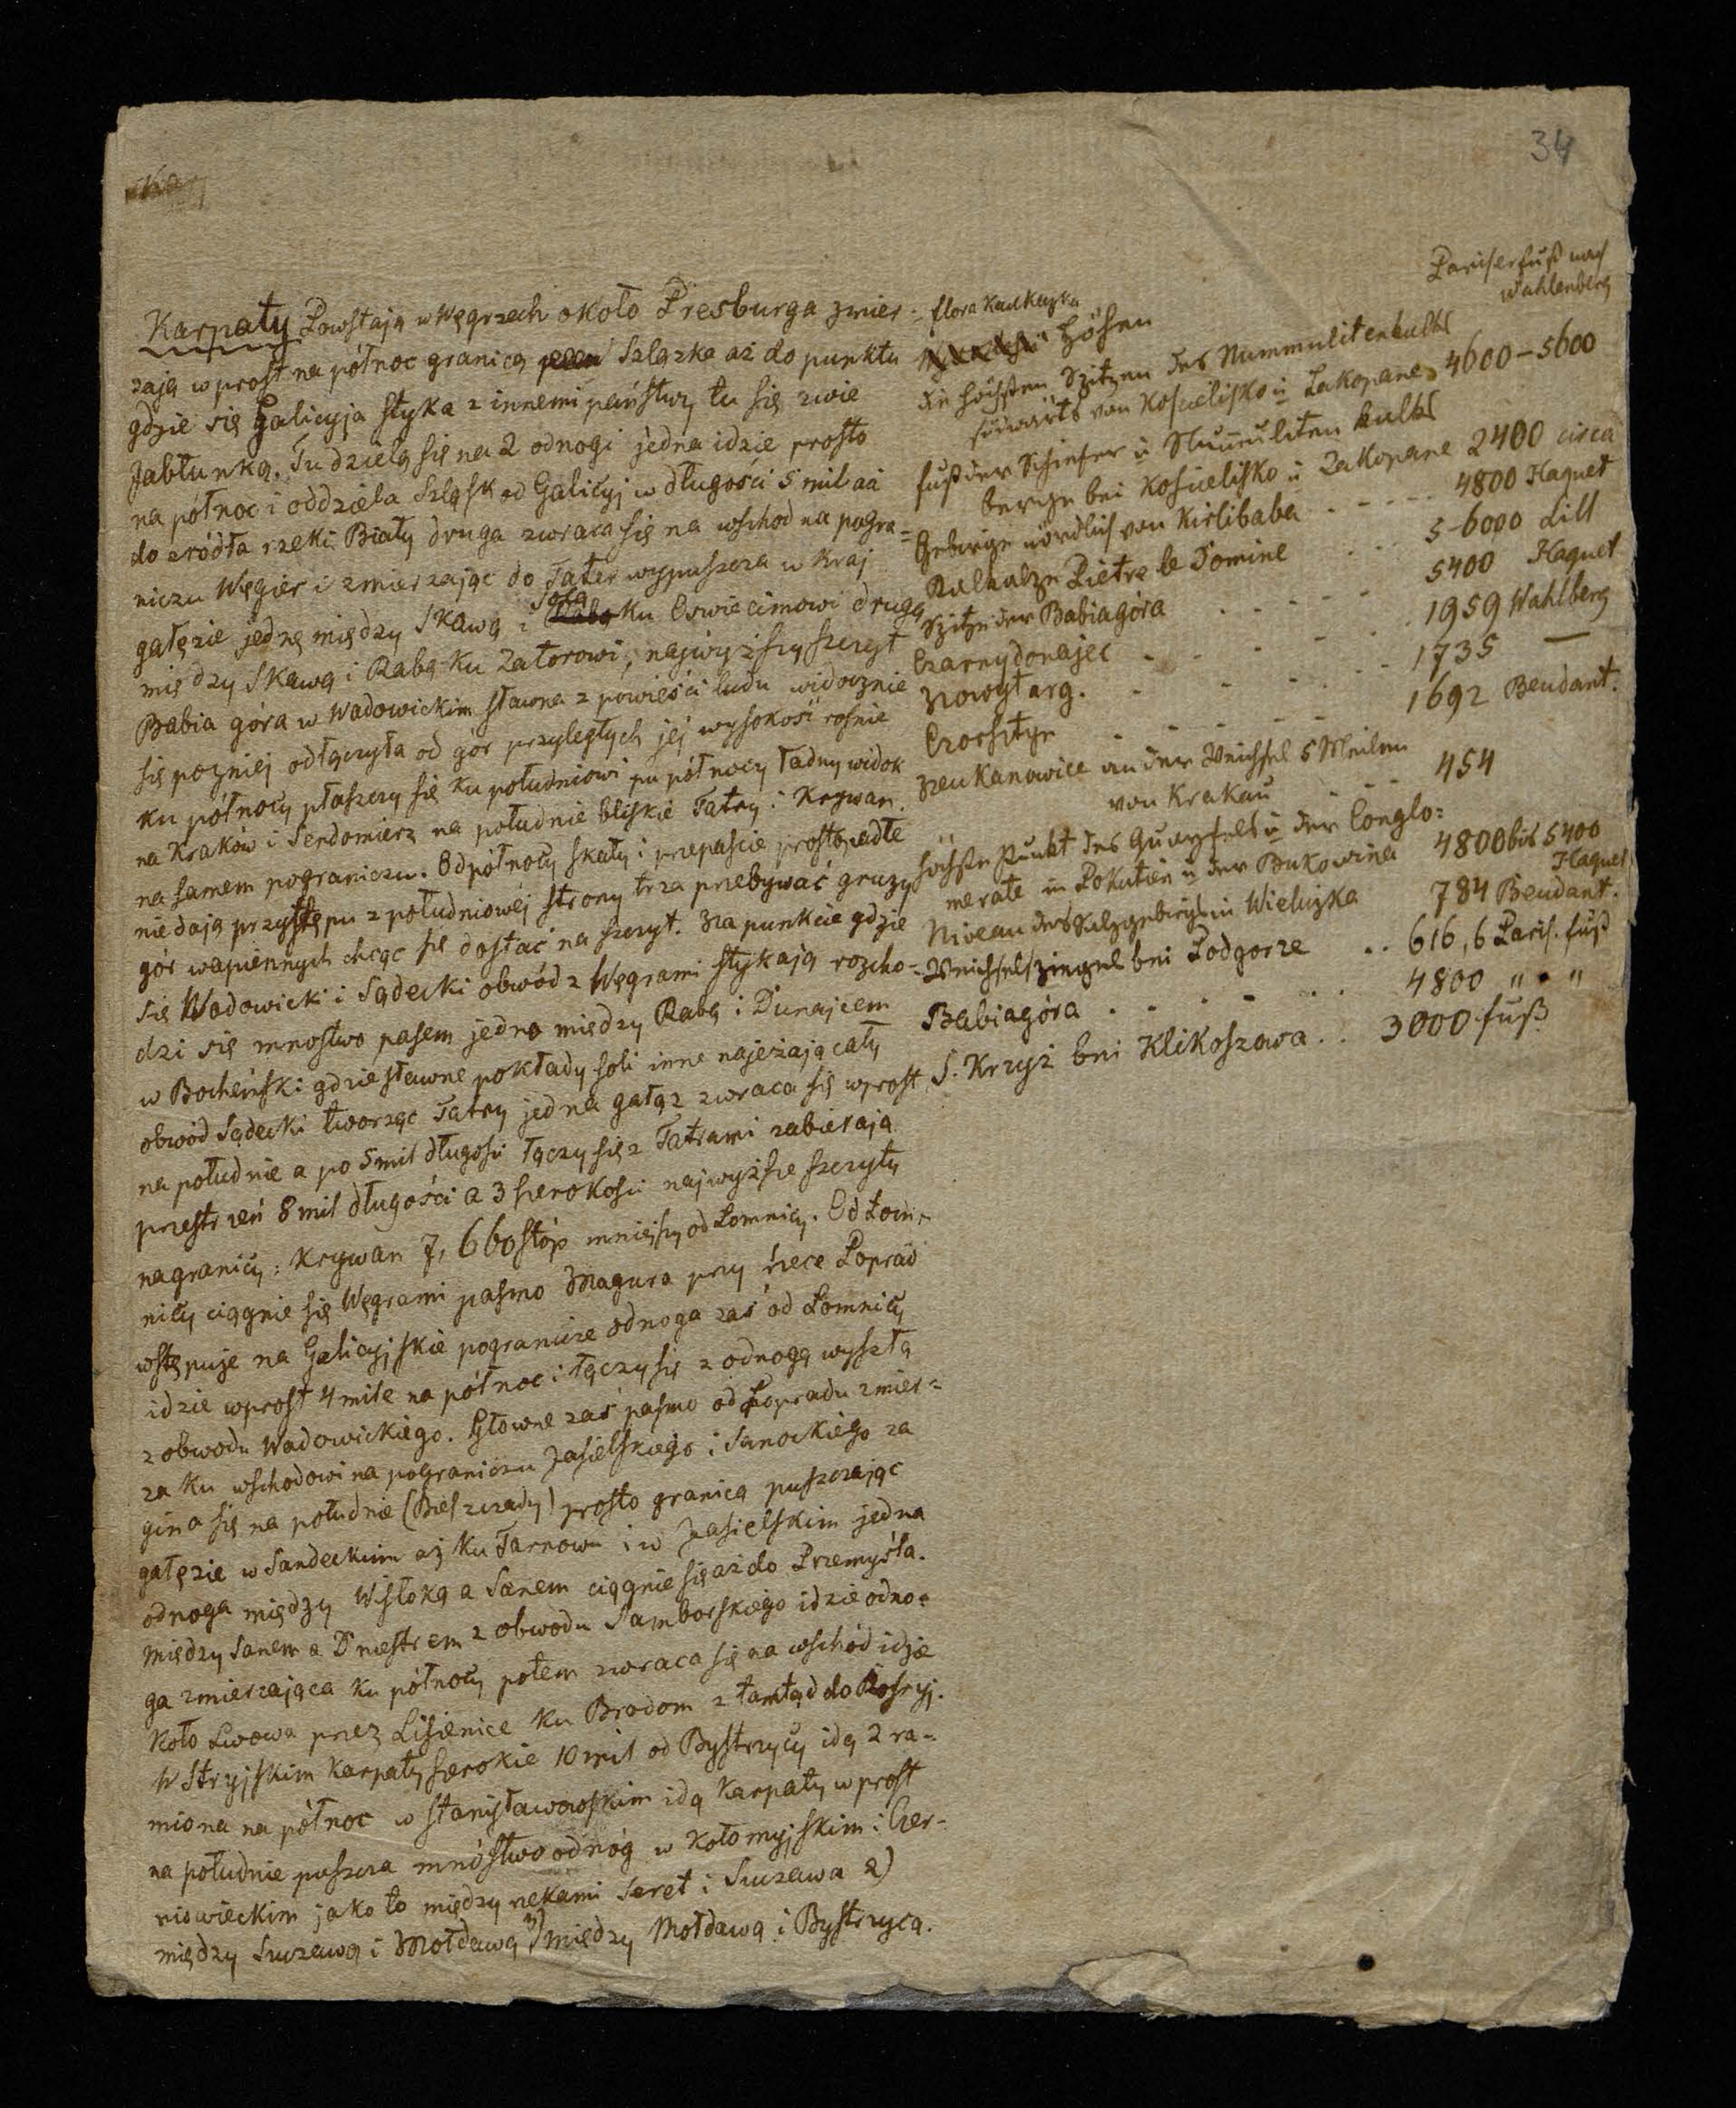 34
Karpaty Powstają w Węgrzech około Presburga zmier-
zają wprost na północ granicą Szlązka aż do punktu
gdzie się Galicyja styka z innemi państwy tu się zwie
Jabłunką. Tu dzielą się na 2 odnogi jedna idzie prosto
na północ i oddziela Szląsk od Galicyj w długości 5 mil aż
do zródła rzeki Biały druga zwraca się na wschod na pogra=
niczu Węgier i zmierzając do Tater wypuszcza w kraj
gałęzie jednę między Skawą i Sołą ku Oswiecimowi drugą
między Skawą i Rabą ku Zatorowi, najwyższy szczyt
Babia góra w Wadowickim sławna z powieści ludu widocznie
się pozniej odłączyła od gór przyległych jej wysokość rośnie
ku północy płaszczy się ku południowi pu północy ładny widok
na Kraków i Sendomierz na południe bliskie Tatry i Krywan.
na samem pograniczu. Od północy skały i przepaście prostopadłe
niedają przystępu z południowéj strony trza przebywać gruzy
gór wapiennych chcąc się dostać na szczyt. Na punkcie gdzie
się Wadowicki i Sądecki obwód z Węgrami stykają rozcho=
dzi się mnostwo pasem jedno między Rabą i Dunajcem
w Bocheński gdzie sławne pokłady soli inne najeżają cały
obwód Sądecki tworząc Tatry jedna gałąz zwraca się wprost
na południe a po 5 mil długości łączy się z Tatrami zabierają
przestrzeń 8 mil długości a 3 szerokości najwyższe szczyty
na granicy: Krywan 7,660 stóp mniejszy od Łomnicy. Od Łom-
nicy ciągnie się Węgrami pasmo Magura przy rzece Poprad
wstępuje na Galicyjskie pogranicze odnoga zaś od Łomnicy
idzie wprost 4 mile na północ i łączy się z odnogą wyszłą
z obwodu Wadowickiego. Główne zaś pasmo od Popradu zmier=
za ku wschodowi na pograniczu Jasielskiego i Sanockiego za
gina się na południe (Bieszczady) prosto granicą puszczając
gałęzie w Sandeckim aż ku Tarnowu i w Jasielskim jedna
odnoga między Wisłoką a Sanem ciągnie się aż do Przemyśla.
Między Sanem a Dniestrem z obwodu Samborskiego idzie odno=
ga zmierzająca ku północy potem zwraca się na wschód idzie
koło Lwowa przez Lisienice ku Brodom z tamtąd do Rossyj.
W Stryjskim Karpaty szerokie 10 mil od Bystrzycy idą 2 ra=
miona na północ w Stanisławowskim idą Karpaty wprost
na południe puszcza mnóstwo odnóg w Kołomyjskim i Czer-
niowieckim jako to między rzekami Seret i Suczawa 2)
między Suczawą i Mołdawą 3) między Mołdawą i Bystrzycą.
flora Kaukazka
Pariserfuß nach
Wahlenberg
Höhen
die höchsten Spitzen des Nummulitenkalks
südwärts von Kościelisko u Zakopane 4600-5600
fuß der Schiefer u Nummuliten kalk
berge bei Kościelisko u Zakopane 2400 circa
Gebirge nördlich von Kirlibaba - - - - - 4800 Haquet
Kalkalpe Pietre le Domine - - - 5-6000 Lill
Spitze der Babiagóra - - - - - 5400 Haquet
Czarnydonajec - - - - - 1959 Wahlberg
Nowytarg. - - - - - 1735 —
Czorsztyn - - - - - 1692 Beudant.
Neukanowice an der Weichsel 5 Meilen
von Krakau - - - 454
höchste Punkt des Quarzfels u der Conglo=
merate in Pokutien u der Bukowina 4800 bis 5400
Haquet
Niveau des Salzgebirgs in Wieliczka 784 Beudant.
Weichselspiegel bei Podgorze .. 616,6 Paris. fuß
Babiagóra - - - - - 4800 " "
S. Krzyż bei Klikoszowa .. 3000 fuß